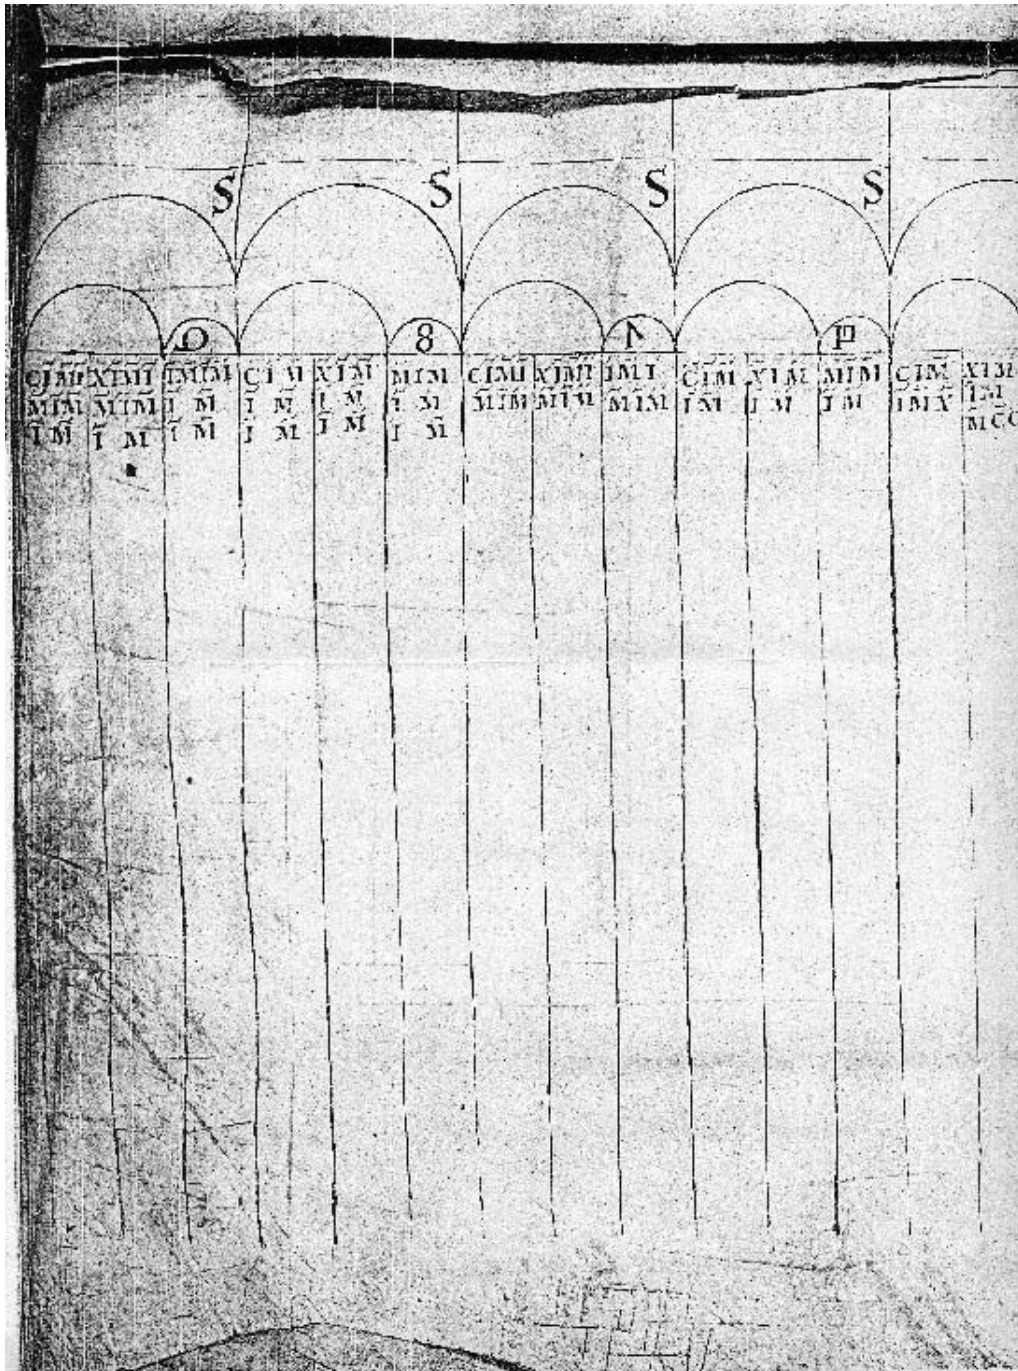 S S S S
8
C̅ I̅ M̅I̅ X̅I̅M̅I̅ I̅M̅I̅M̅ C̅ I̅ M̅ X̅ I̅ M̅ M̅ I̅ M̅ C̅I̅M̅I̅ X̅I̅M̅I̅ I̅M̅I̅ C̅I̅M̅ X̅I̅M̅ M̅I̅M̅ C̅I̅M̅ X̅I̅M̅
M̅I̅M̅ M̅I̅M̅ I̅ M̅ I̅ M̅ I̅ M̅ I̅ M̅ M̅I̅M̅ M̅I̅M̅ M̅I̅M̅ I̅M̅ I̅M̅ I̅M̅ I̅M̅X̅ I̅M̅
I̅ M̅ I̅ M̅ I̅ M̅ I̅ M̅ I̅ M̅ I̅ M̅ M̅C̅C̅